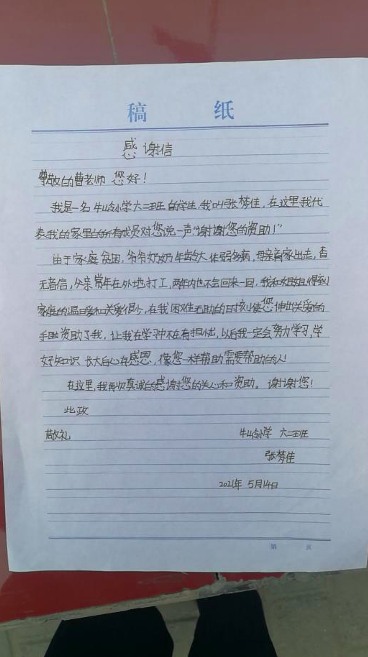 稿 纸
感谢信
尊敬的曹老师 您好!
我是一名牛山小学六二班的学生,我叫张梦佳,在这里我代
表我的家里的所有成员对您说一声"谢谢您的资助!"
由于家庭贫困,爷爷奶奶年龄大,体弱多病,母亲离家出走,杳
无音信,父亲常年在外地打工,两年内也不会回来一回,我在校
家庭的温日爱和关爱很少,在我困难无助的日时候您伸出关爱的
手 资助了我,让我在学习中不在有担忧,以后我一定会努力学习,学
好知识 长大后心存感恩,像您一样帮助需要帮助的人!
在这里,我再次真诚的感谢您的关心和资助。谢谢您!
此致
敬礼 牛山小学 六二班
张梦佳
2021年 5月14日
第 页